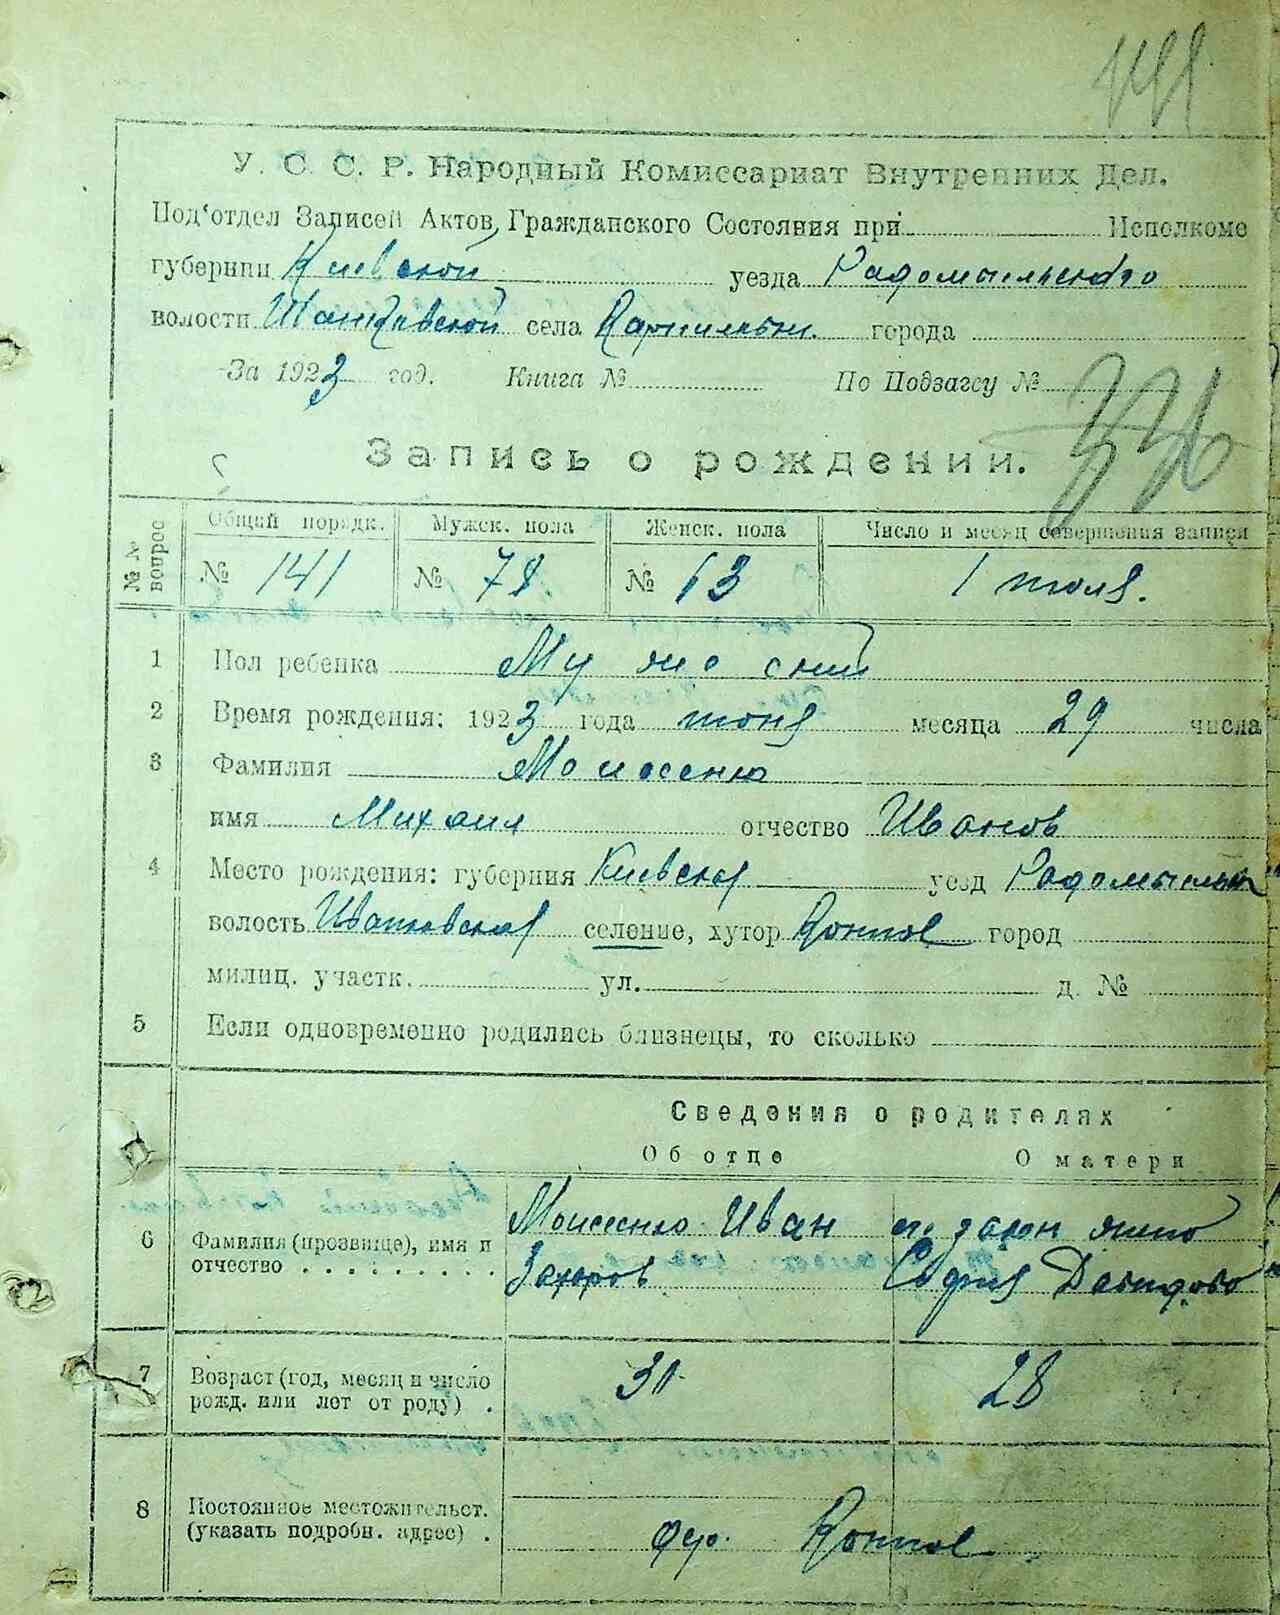 У. С. С. Р. Народный Комиссариат Внутренних Дел.
Под'отдел Записей Актов, Гражданского Состояния при Исполкоме
губернии Киевской уезда Радомысльского
волости села города
За 1923 год. Книга № По Подзагсу №
336
Запись о рождении.
№ № вопрос Общий порядк. Мужск. пола Женск. пола Число и месяц совершения записи
№ 141 № 78 № 63 1 июля.
1 Пол ребенка Мужской
2 Время рождения: 1923 года июня месяца 29 числа
3 Фамилия Моисеенко
имя Михаил отчество Иванов
4 Место рождения: губерния Киевская уезд Радомысльск
волость Иванковская селение, хутор город
милиц. участк. ул. д. №
5 Если одновременно родились близнецы, то сколько
Сведения о родителях
Об отце О матери
6 Фамилия (прозвище), имя и Моисеенко Иван
отчество Захаров София Давидово
7 Возраст (год, месяц и число 28
рожд. или лет от роду)
8 Постоянное местожительст.
(указать подробн. адрес)